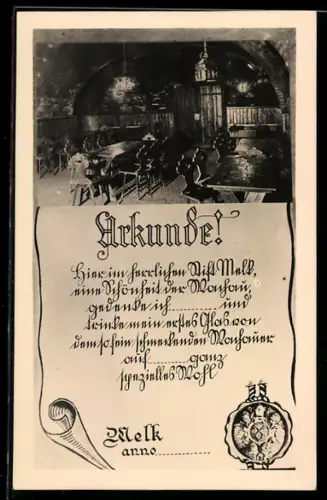 Urkunde!
Hier im herrlichen Stift Melk,
eine Schönheit der Wachau,
gedenke ich ......... und
trinke mein erstes Glas von
dem so fein schmeckenden Wachauer
auf ......... ganz
spezielles Wohl
Melk
anno ............